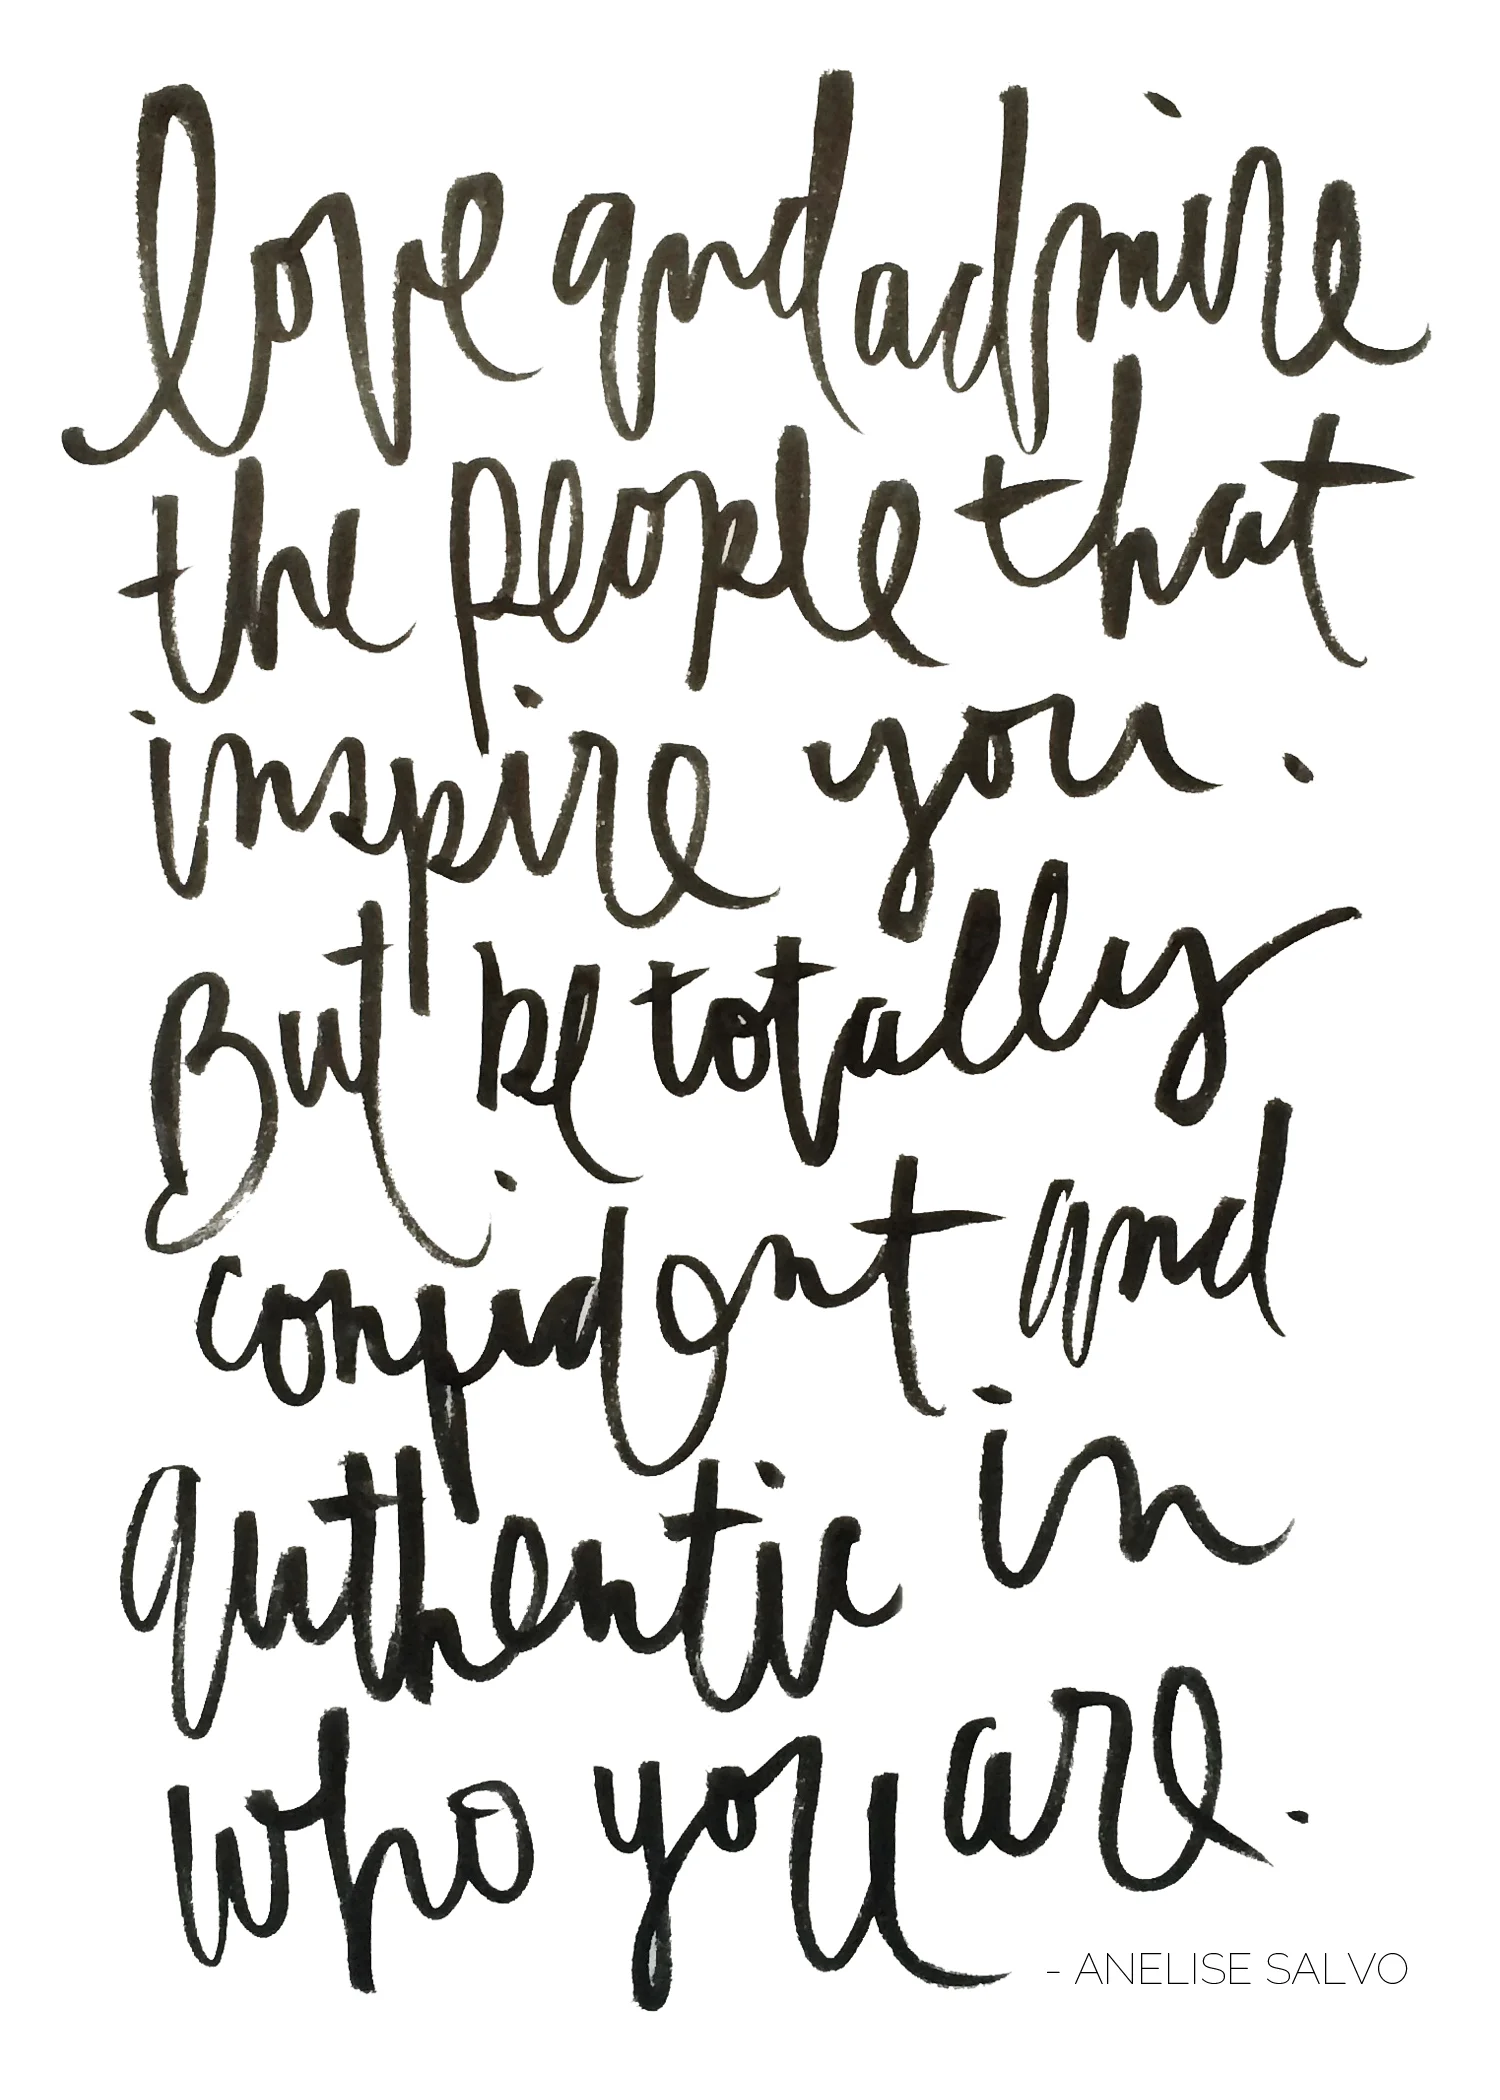 love and admire
the people that
inspire you.
But be totally
confident and
authentic in
who you are.
- ANELISE SALVO